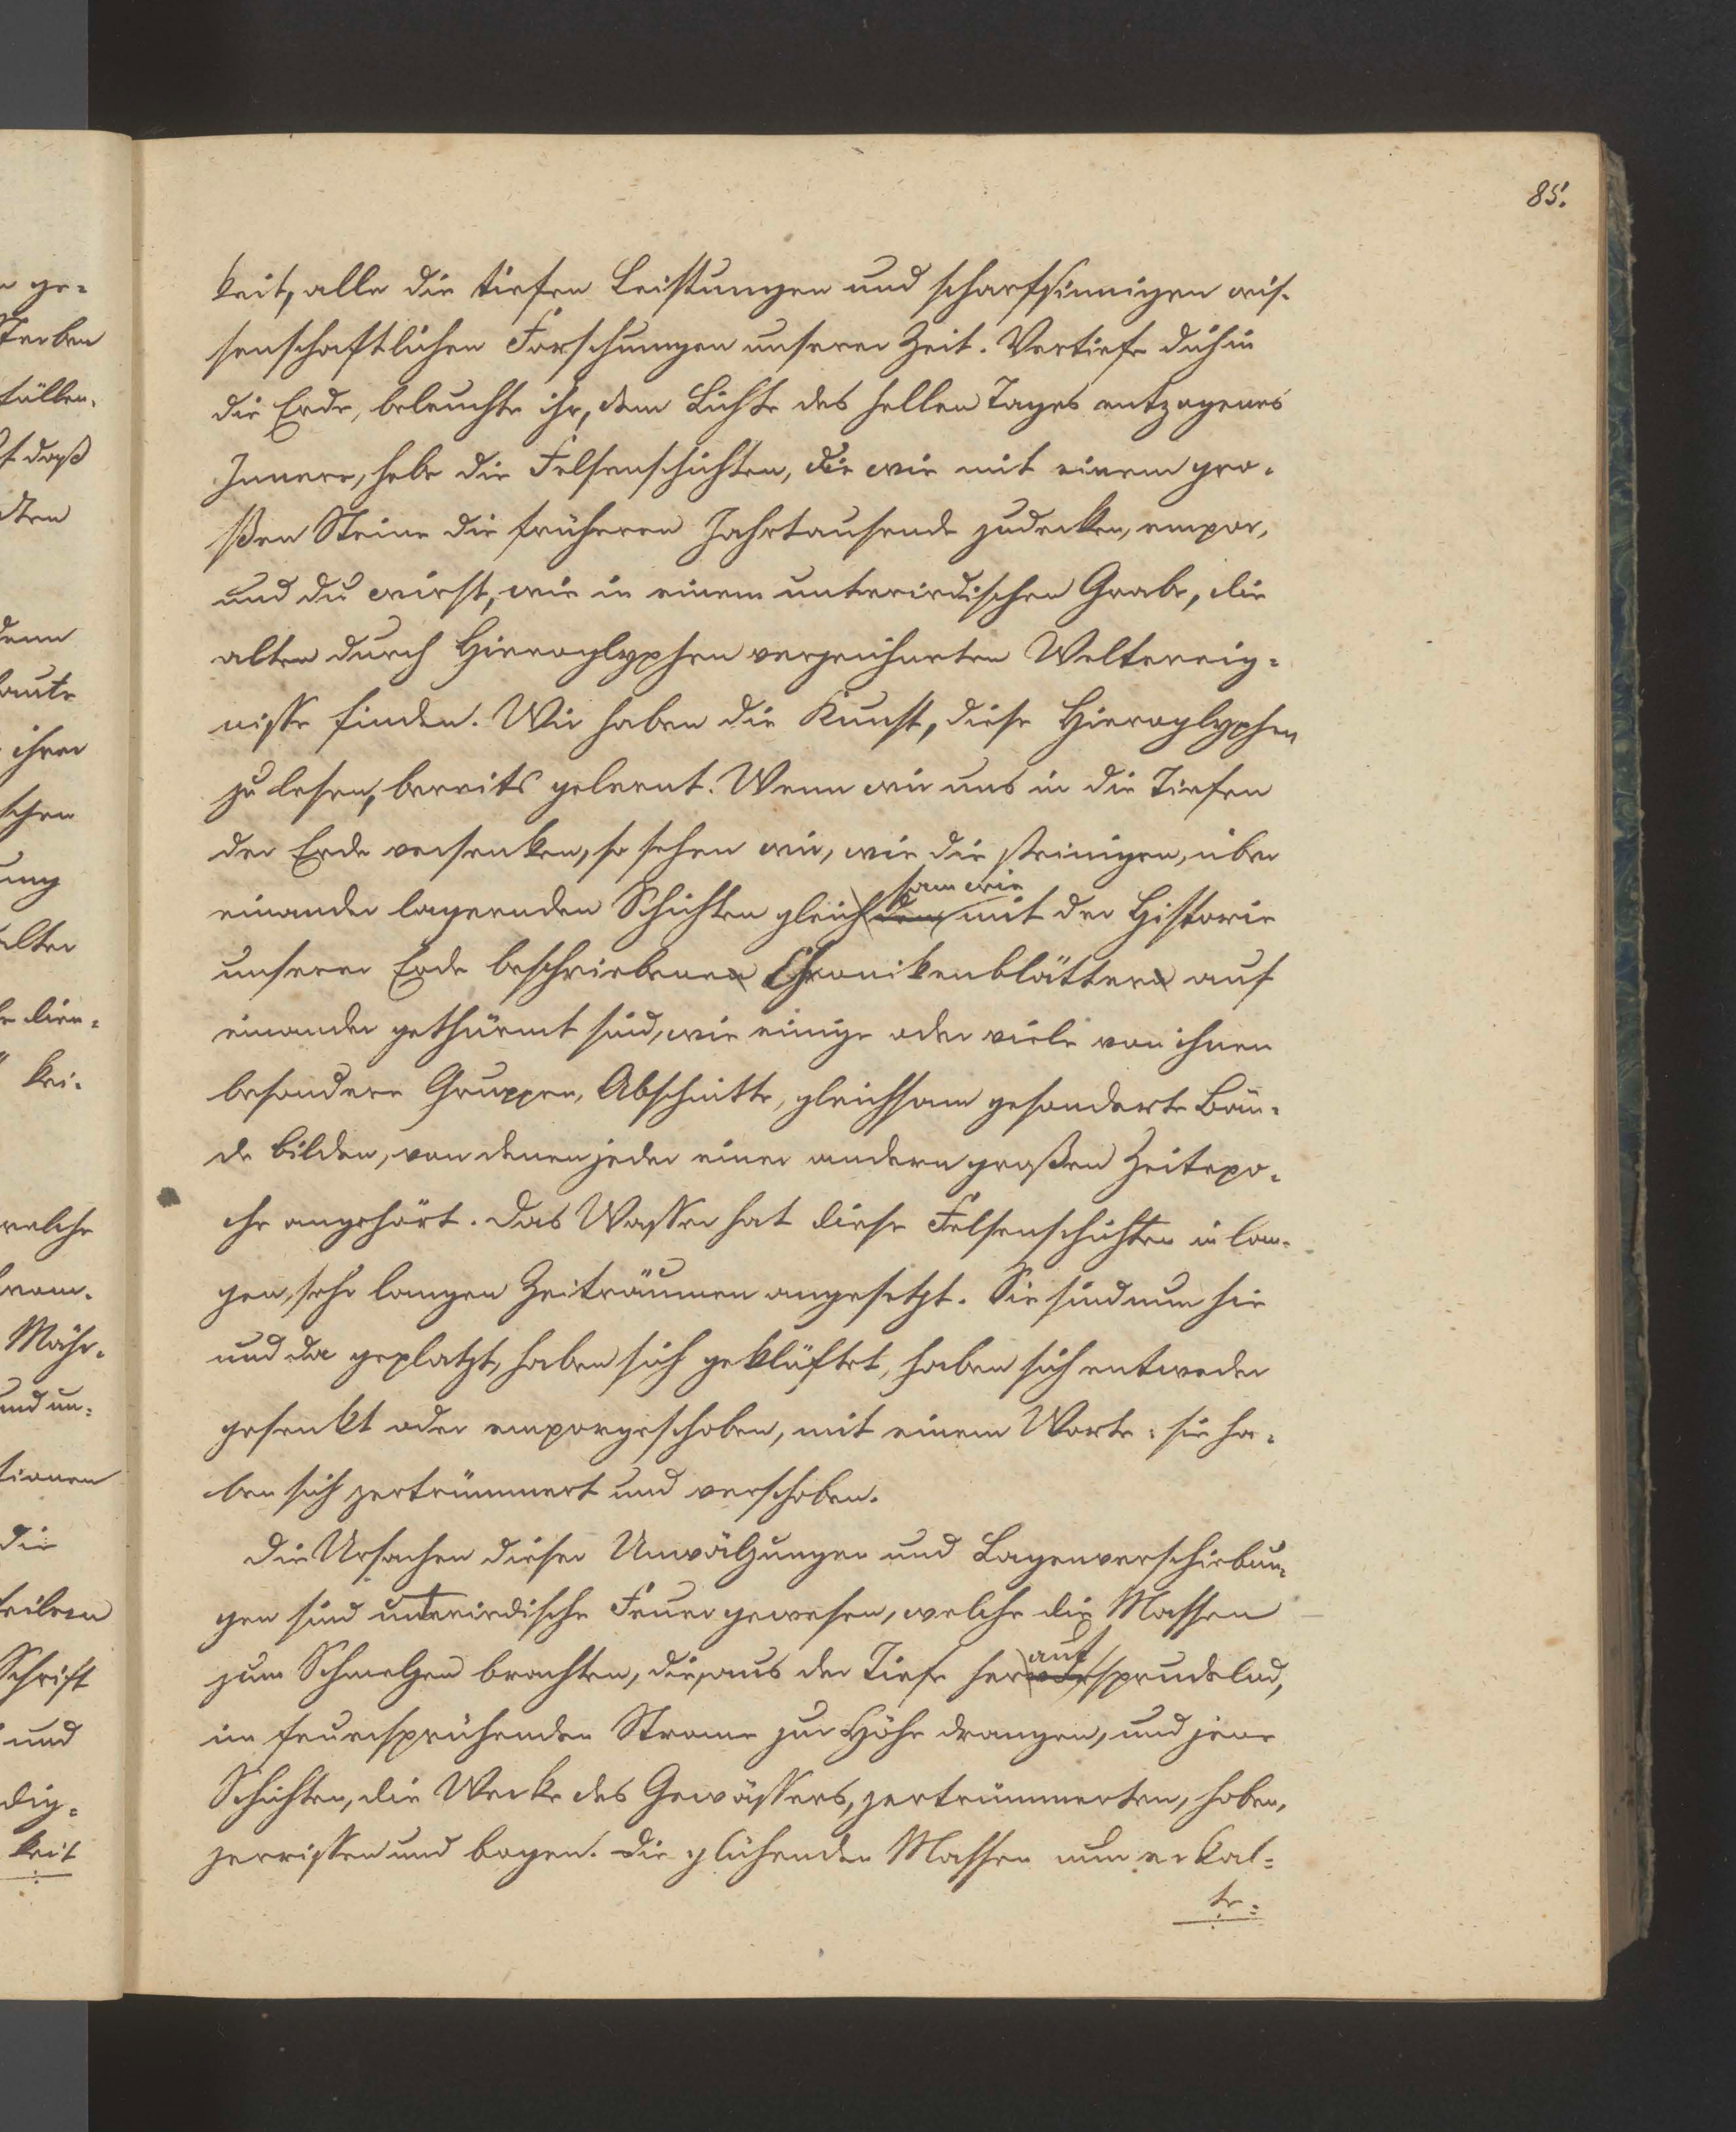 85.
keit, alle die tiefen Leistungen und scharfsinnigen wis-
senschaftlichen Forschungen unserer Zeit. Vertiefe dich in
die Erde, beleuchte ihr, dem Lichte des hellen Tages entzogenes
Innere, hebe die Felsenschichten, die wie mit einem gro-
ßen Steine die früheren Jahrtausende zudecken, empor,
und du wirst, wie in einem unterirdischen Grabe, die
alten durch Hieroglyphen verzeichneten Weltereig-
nisse finden. Wir haben die Kunst, diese Hieroglyphen
zu lesen, bereits gelernt. Wenn wir uns in die Tiefen
der Erde versenken, so sehen wir, wie die steinigen, über
sam wie
einander lagernden Schichten gleich den mit der Historie
unserer Erde beschriebenen Chronikenblättern auf
einander gethürmt sind, wie einige oder viele von ihnen
besondere Gruppen, Abschnitte, gleichsam gesonderte Bän-
de bilden, von denen jeder einer andern großen Zeitepo-
che angehört. Das Wasser hat diese Felsenschichten in lan-
gen, sehr langen Zeiträumen angesetzt. Sie sind nun hie
und da geplatzt, haben sich geklüftet, haben sich entweder
gesenkt oder emporgeschoben, mit einem Worte: sie ha-
ben sich zertrümmert und verschoben.
Die Ursachen dieser Umwälzungen und Lagenverschiebun-
gen sind unterirdische Feuer gewesen, welche die Massen
auf
zum Schmelzen brachten, die, aus der Tiefe hervorsprudelnd,
im feuersprühenden Strome zur Höhe drangen, und jene
Schichten, die Werke des Gewässers, zertrümmerten, hoben,
zerrissen und bogen. Die glühenden Massen nun erkal-
te-
ge-
sterben
füllen.
daß
denn
laute
ihrer
schen
ung
alter
dien-
kei-
welche
Mähr-
und un-
tionen
die
theilen
Schrift
und
dig-
keit